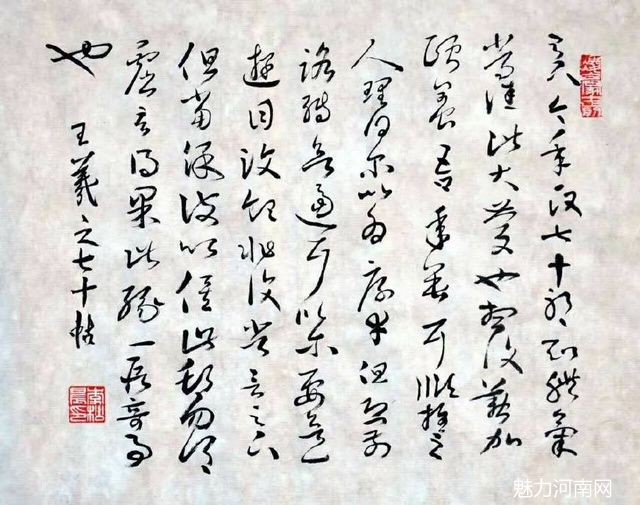 足下今年政七十耶知體氣
常佳此大慶也想復懃加
頤養吾年垂耳順推之
人理得爾以為厚幸但恐前
路轉欲逼耳以爾要欲一
遊目汶領非復常言足下
但當保護以俟此期勿謂
虛言得果此緣一段奇事
也
王羲之七十帖
魅力河南网